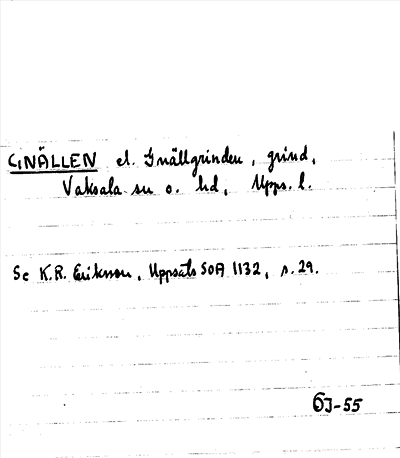 GNÄLLEN el. Gnällgrinden, grind,
Vaksala sn o. hd, Upps. l.
Se K.R. Eriksson, Uppsats SOA 1132, s. 29.
ÖJ-55